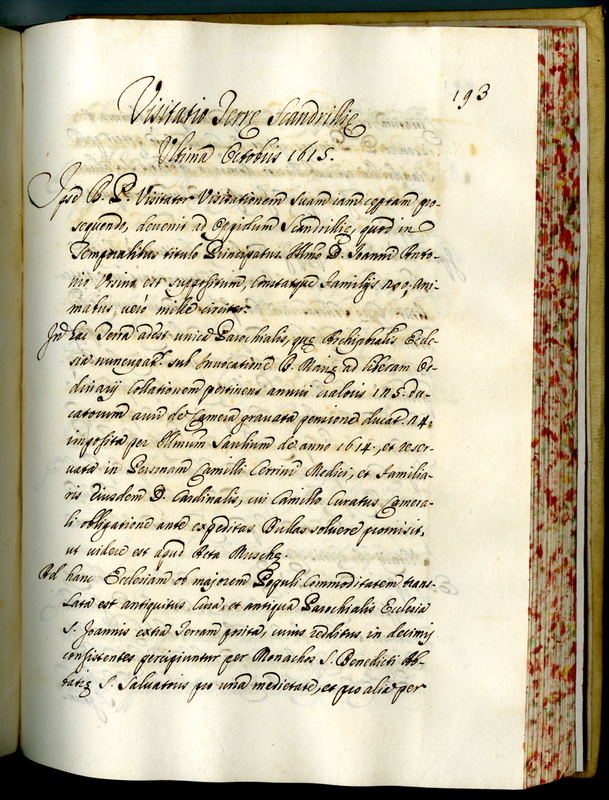 193
Visitatio Terre Scandrilie
Ultima Octobris 1615.
Ipse R. P. Visitator Visitationem suam iam ceptam pro-
sequendo, devenit ad Oppidum Scandrilie, quod in
Temporalibus titulo Principatus Illmo D. Joanni Anto-
nio Ursino est suppositum, constatque familijs 200, ani-
mabus vero mille circiter.
In hac Terra adest unica Parochialis, quę Archipbalis Eccle-
sia nuncupat. sub Invocatione B. Marię ad liberam Or-
dinarij collationem pertinens annui valoris 125. du-
catorum auri de Camera gravata pensione ducat. 24.
imposita per Illmum Saulium de anno 1614. et reser-
vata in Personam Camilli Cerrini Medici, et familia-
ris eiusdem D. Cardinalis, cui Camillo Curatus Camera-
li obligatione ante expeditas Bullas solvere promisit,
ut videre est apud Acta Muschę.
Ad hanc Ecclesiam ob majorem Populi Commoditatem trans-
lata est antiquitus cura, et antiqua Parochialis Ecclesia
S. Joannis extra Terram posita, cuius redditus in decimis
consistentes percipiuntur per Monachos S. Benedicti Ab-
batię S. Salvatoris pro una medietate, et pro alia per